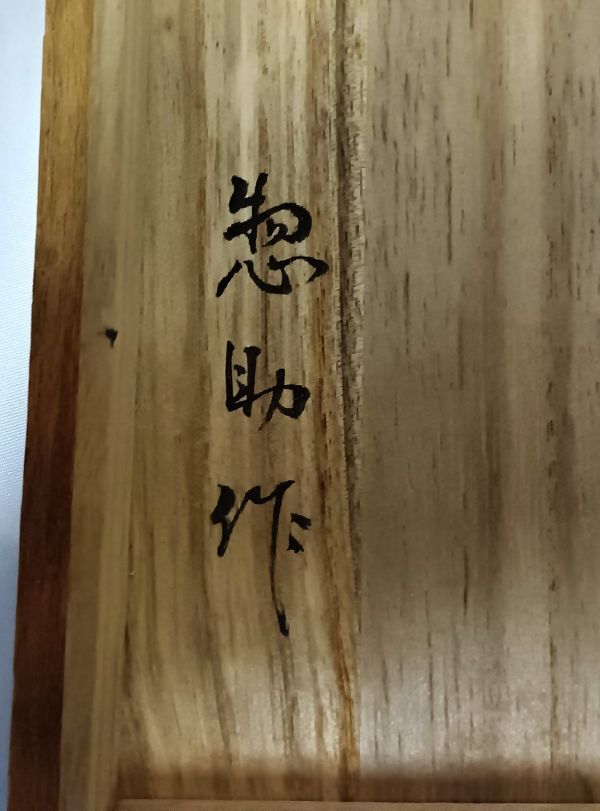 惣助作